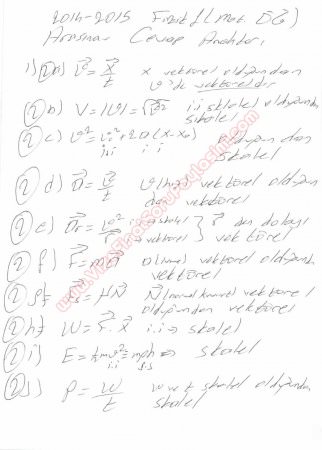 2014-2015 Fizik I (Mat. ÖĞ)
Arasınav Cevap Anahtarı
1) (2) a) v = x/t x vektörel olduğundan
v'de vektöreldir
(2) b) V = |v| = i.i skaler olduğundan
skaler
(2) c) v² = v₀² + 2a(x-x₀) olduğundan
i.i i.i skaler
(2) d) a = v/t v(hız) vektörel olduğun
dan vektörel
(2) e) ar = v²/r skaler r den dolayı
vektörel vektörel
(2) f) F = ma a(ivme) vektörel olduğundan
vektörel
(2) = μN N(normal kuvvet) vektörel
olduğundan vektörel
(2) h) W = F . x i.i ⇒ skaler
(2) i) E = ½mv² = mgh ⇒ skaler
i.i
(2) j) P = W/t w ve t skaler olduğundan
skaler
www.VizeFinalSoruPaylasimi.com